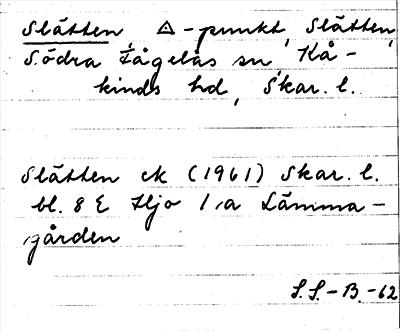 Slätten, △-punkt, Slätten,
Södra Fågelås sn, Kå-
kinds hd, Skar. l.
Slätten ek (1961) Skar. l.
bl. 8 E Hjo 1, a Lämma-
gården
S.S.-B.-62